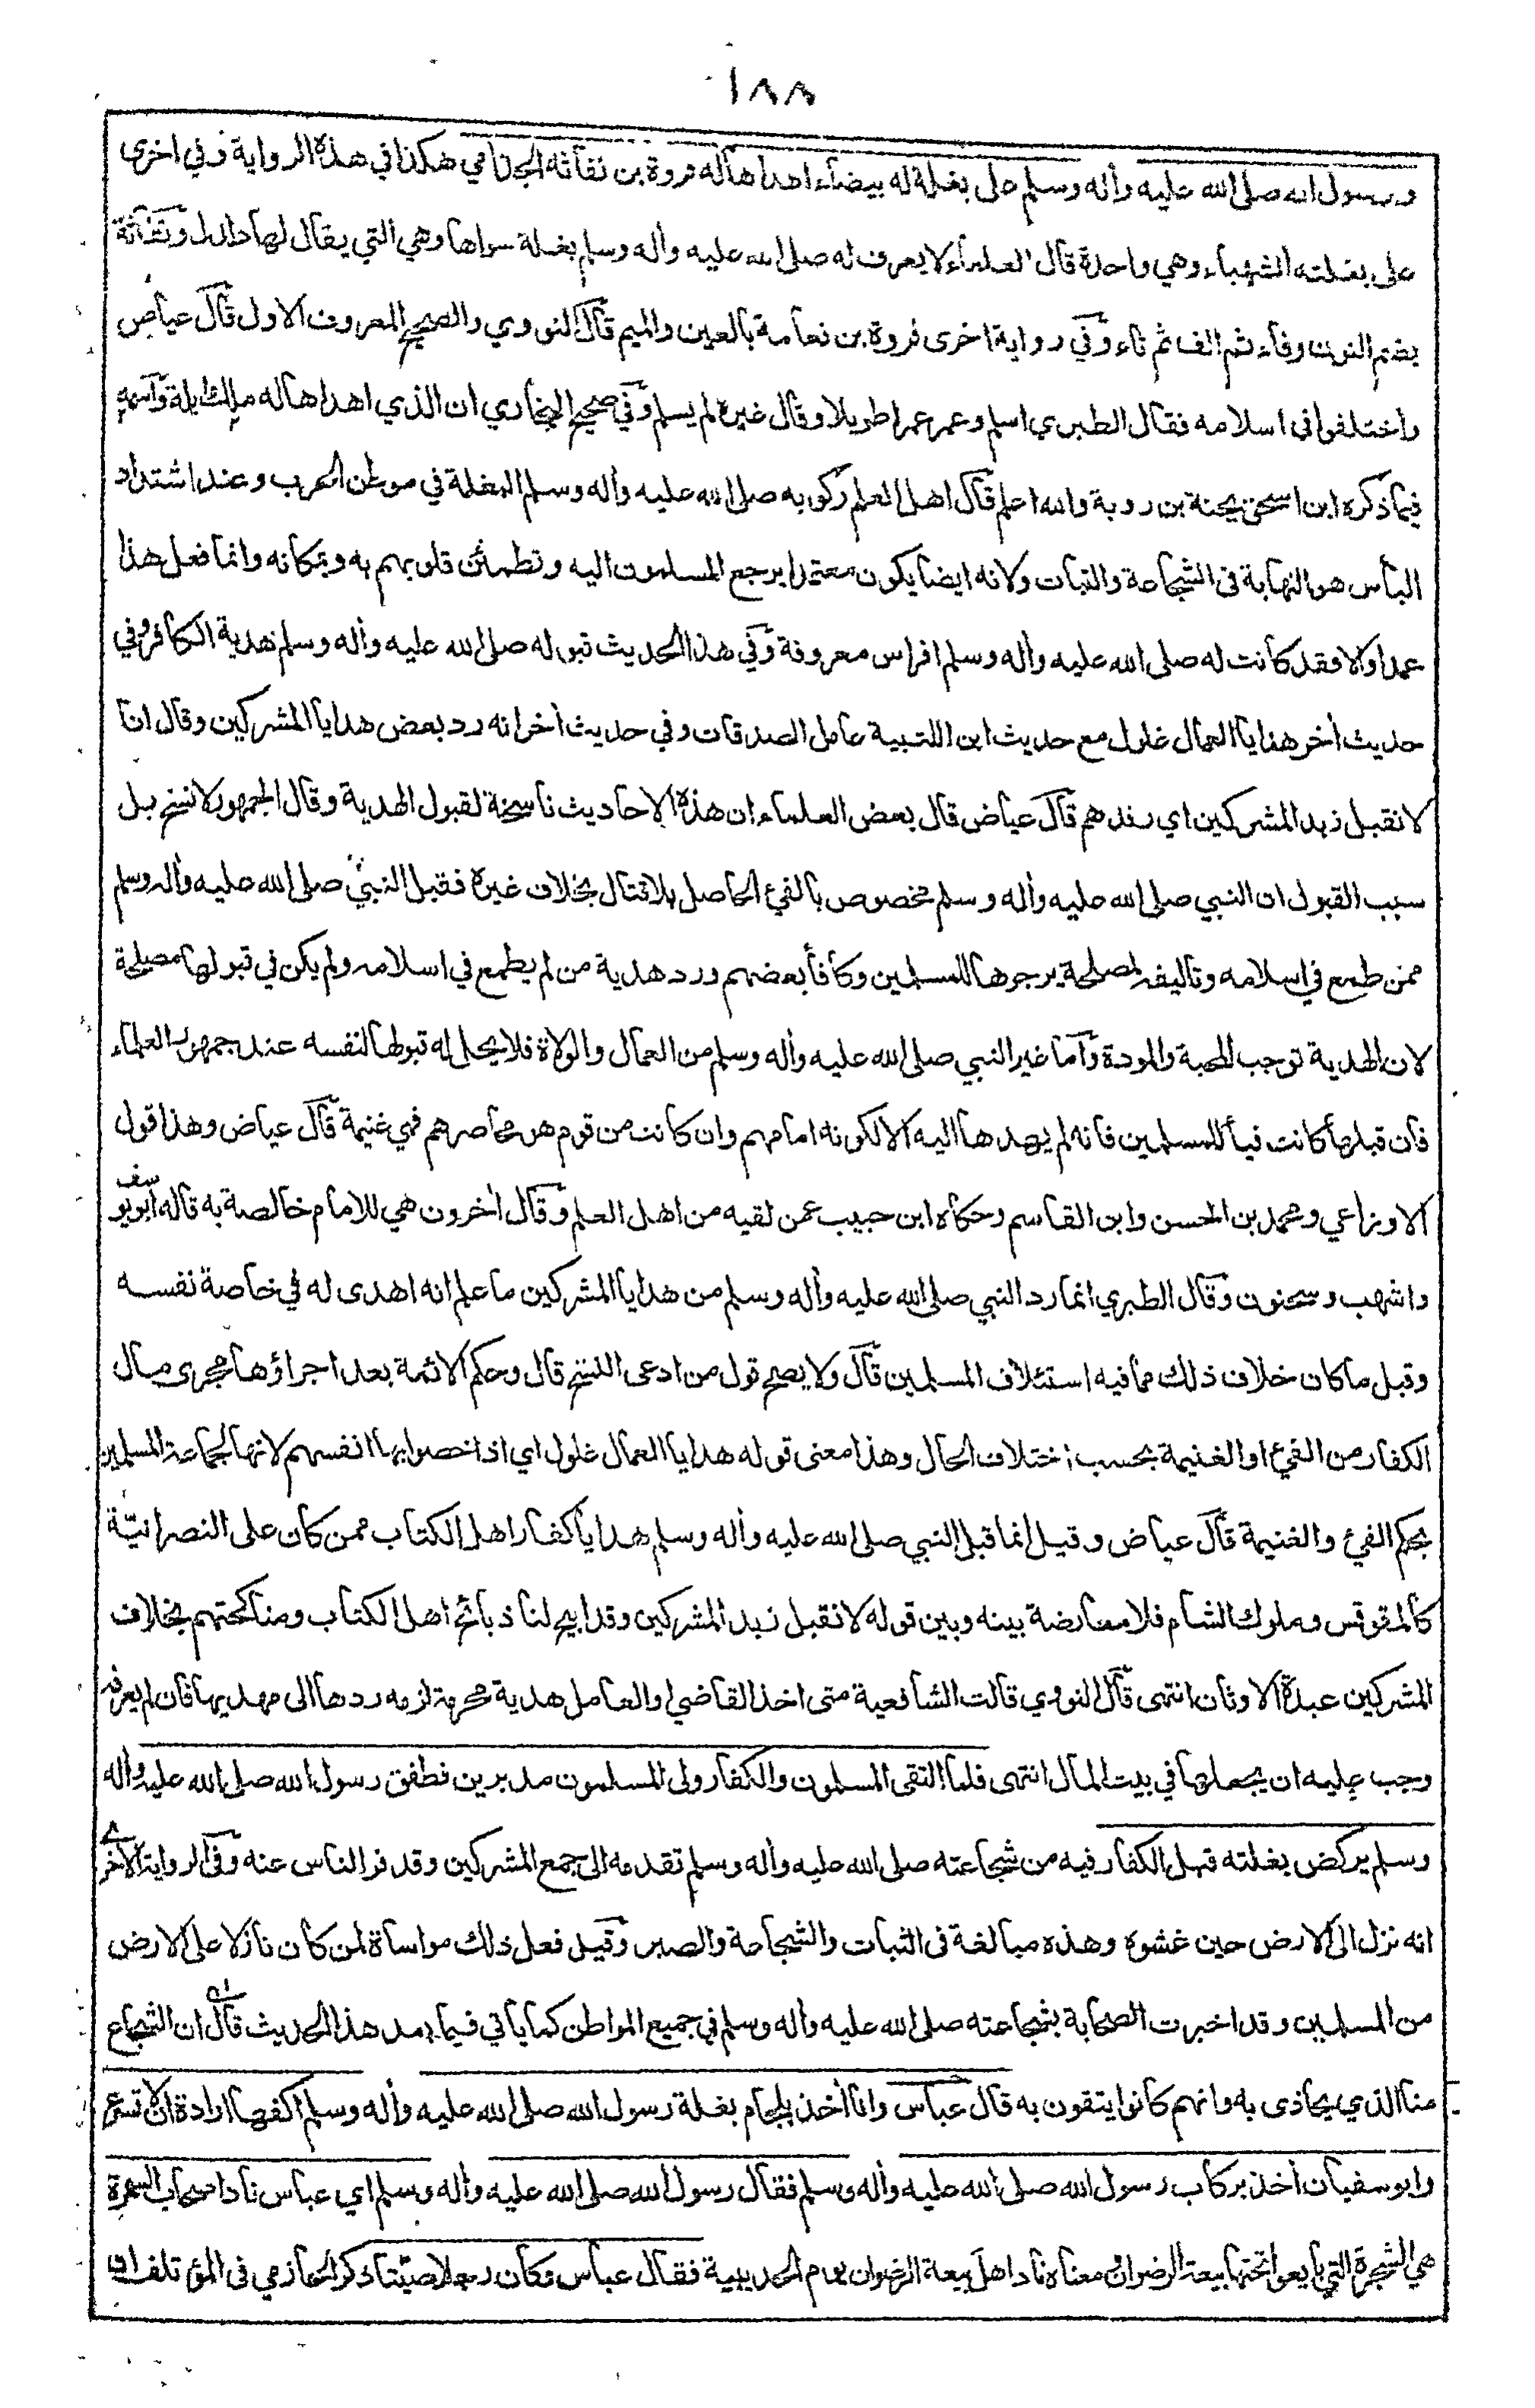 ١٨٨
ورسول الله صلى الله عليه وأله وسلم على بغلة له بيضاء اهداها له فروة بن نفاثة الجذامي هكذا في هذه الرواية وفي اخرى
على بغلته الشهباء وهي واحدة قال العلماء لا يعرف له صلى الله عليه وأله وسلم بغلة سواها وهي التي يقال لها دلدل ونفاثة
بضم النون وفاء ثم الف ثم ثاء وفي رواية اخرى فروة بن نعامة بالعين والميم قال النووي والصحيح المعروف الاول قال عياض
واختلفوا في اسلامه فقال الطبري اسلم وعمر عمرا طويلا وقال غيره لم يسلم وفي صحيح البخاري ان الذي اهداها له ملك ايلة واسمه
فيما ذكره ابن اسحق يحنة بن روبة والله اعلم قال اهل العلم ركوبه صلى الله عليه وأله وسلم البغلة في موطن الحرب وعند اشتداد
البأس هو النهاية في الشجاعة والثبات ولانه ايضا يكون معتمدا يرجع المسلمون اليه وتطمئن قلوبهم به وبمكانه وانما فعل هذا
عمدا والا فقد كانت له صلى الله عليه وأله وسلم افراس معروفة وفي هذا الحديث قبوله صلى الله عليه وأله وسلم هدية الكافر وفي
حديث أخر هدايا العمال غلول مع حديث ابن اللتبية عامل الصدقات وفي حديث أخر انه رد بعض هدايا المشركين وقال انا
لا نقبل زبد المشركين اي رفدهم قال عياض قال بعض العلماء ان هذه الاحاديث ناسخة لقبول الهدية وقال الجمهور لا نسخ بل
سبب القبول ان النبي صلى الله عليه وأله وسلم مخصوص بالفئ الحاصل بلا قتال بخلاف غيره فقبل النبي صلى الله عليه وأله وسلم
ممن طمع في اسلامه وتاليفه لمصلحة يرجوها للمسلمين وكافأ بعضهم ورد هدية من لم يطمع في اسلامه ولم يكن في قبولها مصلحة
لان الهدية توجب المحبة والمودة وأما غير النبي صلى الله عليه وأله وسلم من العمال والولاة فلا يحل له قبولها لنفسه عند جمهور العلماء
فان قبلها كانت فيأ للمسلمين فانه لم يهدها اليه الا لكونه امامهم وان كانت من قوم هو محاصرهم فهي غنيمة قال عياض وهذا قول
الاوزاعي ومحمد بن الحسن وابن القاسم وحكاه ابن حبيب عمن لقيه من اهل العلم وقال أخرون هي للامام خالصة به قاله ابو يوسف
واشهب وسحنون وقال الطبري انما رد النبي صلى الله عليه وأله وسلم من هدايا المشركين ما علم انه اهدى له في خاصة نفسه
وقبل ما كان خلاف ذلك مما فيه استئلاف المسلمين قال ولا يصح قول من ادعى النسخ قال وحكم الائمة بعد اجراؤها مجرى مال
الكفار من الفئ او الغنيمة بحسب اختلاف الحال وهذا معنى قوله هدايا العمال غلول اي اذا خصوا بها انفسهم لانها لجماعة المسلمين
بحكم الفئ والغنيمة قال عياض وقيل انما قبل النبي صلى الله عليه وأله وسلم هدايا كفار اهل الكتاب ممن كان على النصرانيّة
كالمقوقس وملوك الشام فلا معارضة بينه وبين قوله لا نقبل زبد المشركين وقد ابيح لنا ذبائح اهل الكتاب ومناكحتهم بخلاف
المشركين عبدة الاوثان انتهى قال النووي قالت الشافعية متى اخذ القاضي او العامل هدية محرمة لزمه ردها الى مهديها فان لم يعرفه
وجب عليه ان يجعلها في بيت المال انتهى فلما التقى المسلمون والكفار ولى المسلمون مدبرين فطفق رسول الله صلى الله عليه وأله
وسلم يركض بغلته قبل الكفار فيه من شجاعته صلى الله عليه وأله وسلم تقدمه الى جمع المشركين وقد فر الناس عنه وفي الرواية الاخرے
انه نزل الى الارض حين غشوه وهذه مبالغة في الثبات والشجاعة والصبر وقيل فعل ذلك مواساة لمن كان نازلا على الارض
من المسلمين وقد اخبرت الصحابة بشجاعته صلى الله عليه وأله وسلم في جميع المواطن كما ياتي فيما بعد هذا الحديث قال ان الشجاع
منا الذي يحاذى به وانهم كانوا يتقون به قال عباس وانا أخذ بلجام بغلة رسول الله صلى الله عليه وأله وسلم اكفها ارادة ان لا تسرع
وابو سفيان أخذ بركاب رسول الله صلى الله عليه وأله وسلم فقال رسول الله صلى الله عليه وأله وسلم اي عباس ناد اصحاب السمرة
هي الشجرة التي بايعوا تحتها بيعة الرضوان ومعناه ناد اهل بيعة الرضوان يوم الحديبية فقال عباس وكان رجلا صيّتا ذكر الحازمي في المؤتلف ان